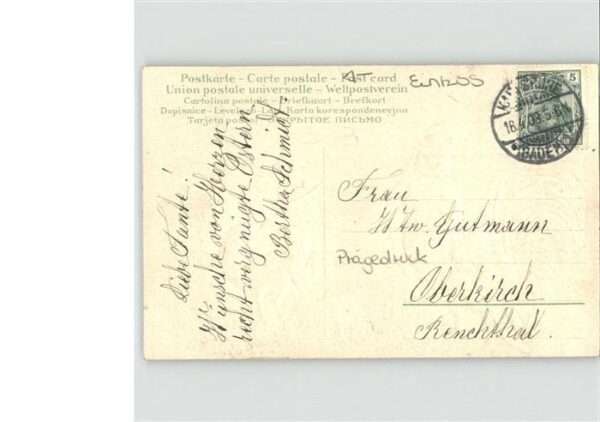 Postkarte - Carte postale - Post card
Union postale universelle - Weltpostverein
Cartolina postale - Briefkaart - Brefkort
Dopisnice - Levelező-Lap - Karta korespondencyjna
Tarjeta postal - ОТКРЫТОЕ ПИСЬМО
Liebe Tante!
Wünsche von Herzen
recht vergnügte Ostern.
Bertha Schmidt
5
(BADEN)
Frau
Wtw. Gutmann
Prägedruck
Oberkirch
Renchthal.